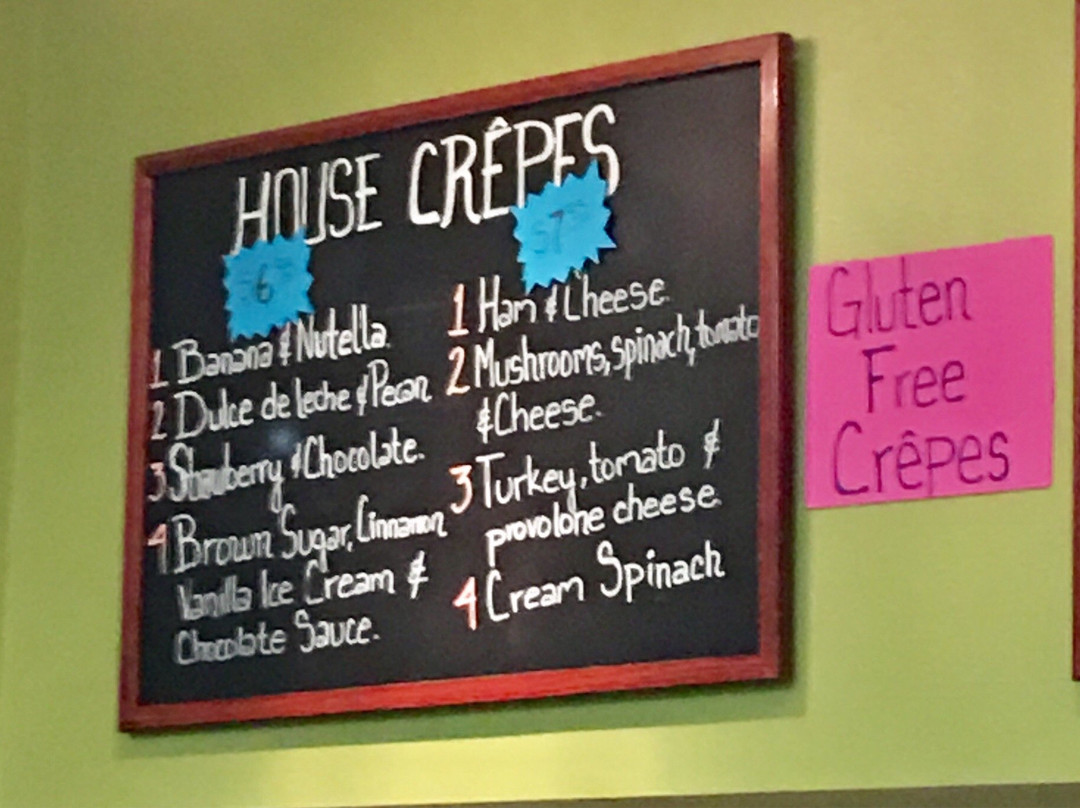 HOUSE CRÊPES
1 Banana & Nutella
2 Dulce de leche & Pecan
3 Strawberry & Chocolate.
4 Brown Sugar, Cinnamon
Vanilla Ice Cream &
Chocolate Sauce.
1 Ham & Cheese.
2 Mushrooms, spinach, tomato
& Cheese.
3 Turkey, tomato &
provolone cheese.
4 Cream Spinach
Gluten
Free
Crêpes